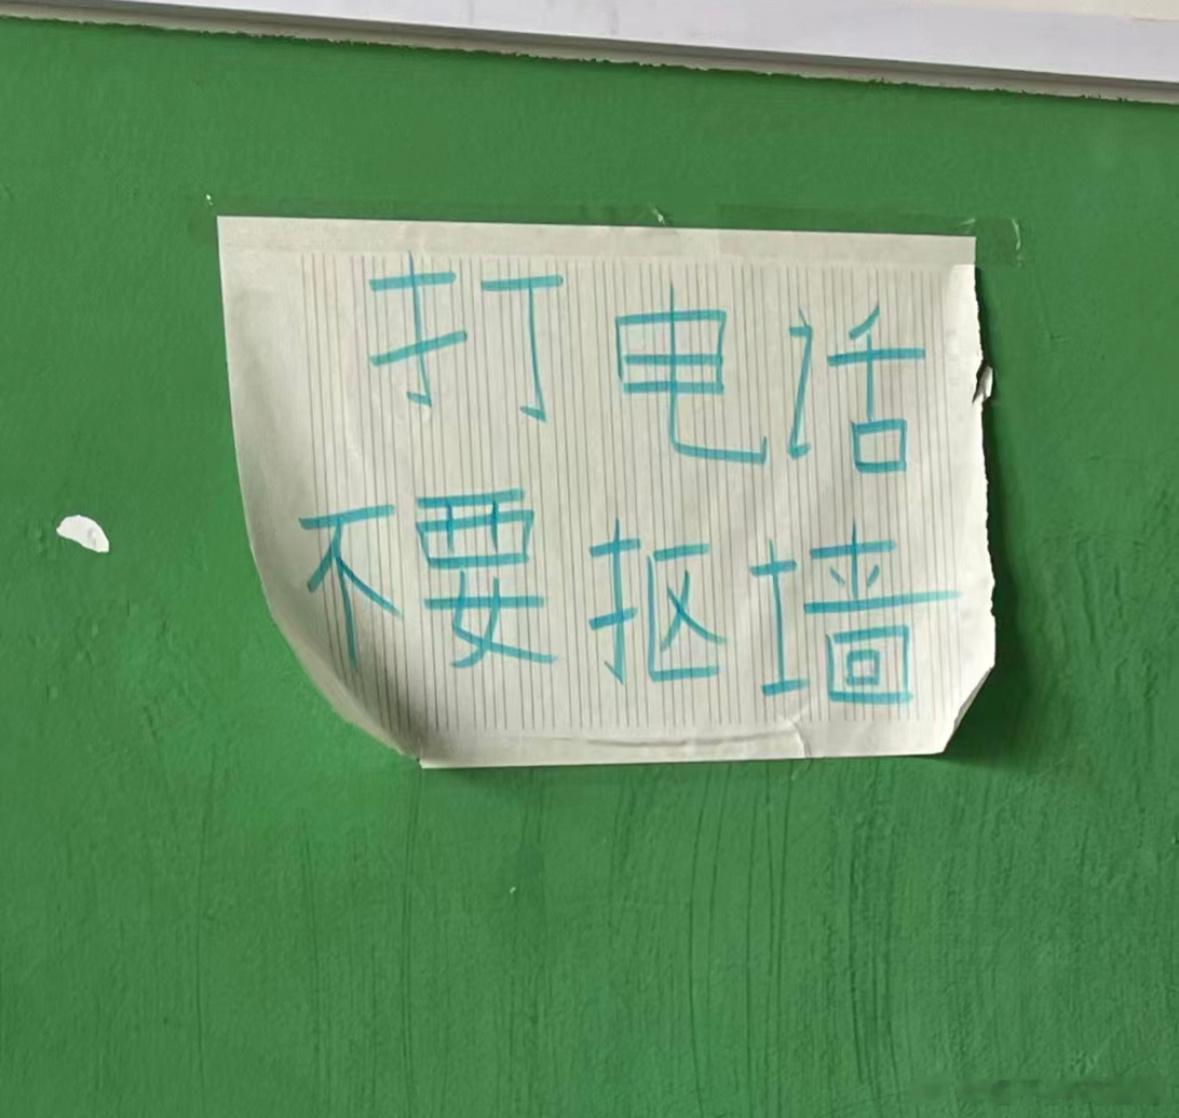 打电话
不要抠墙